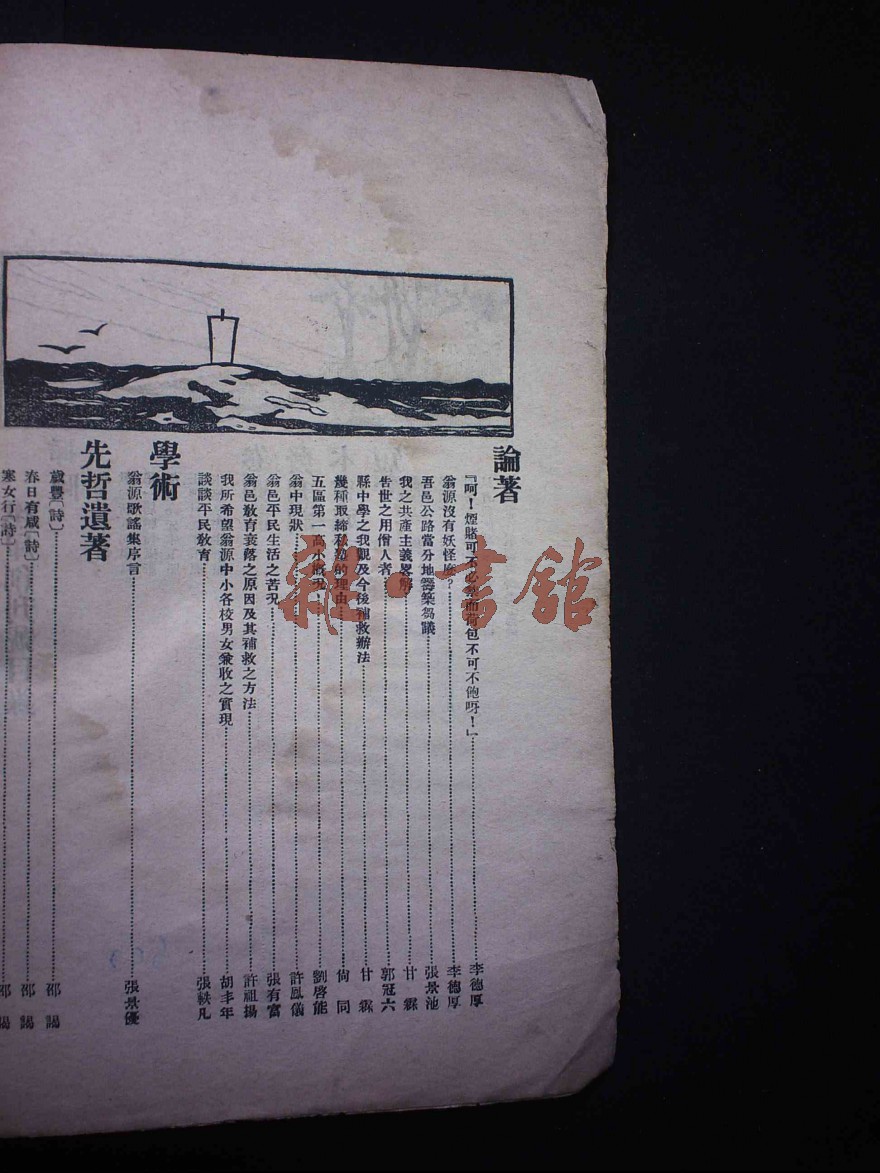 論著
『呵！煙賭可不必禁而荷包不可不飽呀！』……李德厚
翁源沒有妖怪麽……李德厚
吾邑公路當分地署築芻議……張景池
我之共產主義畧解……甘霖
告世之用僧人者……郭冠六
縣中學之我觀及今後補救辦法……甘霖
幾種取締私塾的理由……尙同
五區第一高小概况……劉啓能
翁中現狀……許鳳儀
翁邑平民生活之苦况……張有富
翁邑敎育衰落之原因及其補救之方法……許祖揚
我所希望翁源中小各校男女兼收之實現……胡丰年
談談平民敎育……張軼凡
學術
翁源歌謠集序言……張景優
先哲遺著
歲豐〔詩〕……邵謁
春日有感〔詩〕……邵謁
寒女行〔詩〕……邵謁
雜·書館